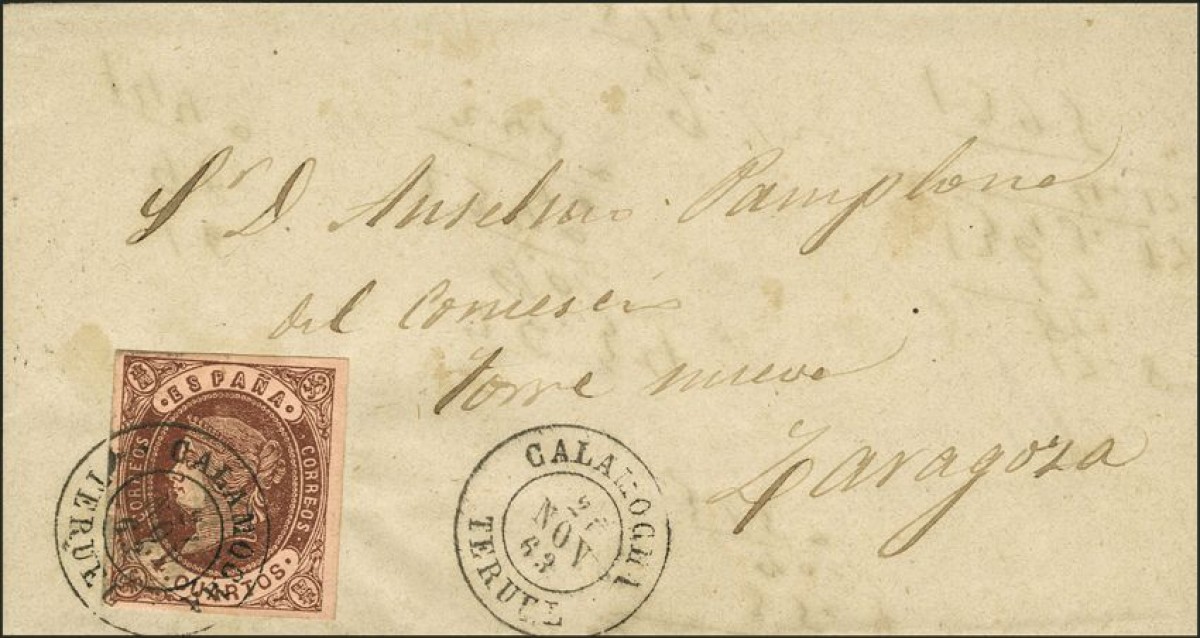 Sr D. Anselmo Pamplona
del Comercio
torre nueva
Zaragoza
ESPAÑA
CORREOS
CORREOS
CUARTOS.
CALAMOCHA
TERUEL
CALAMOCHA
NOV
63
TERUEL